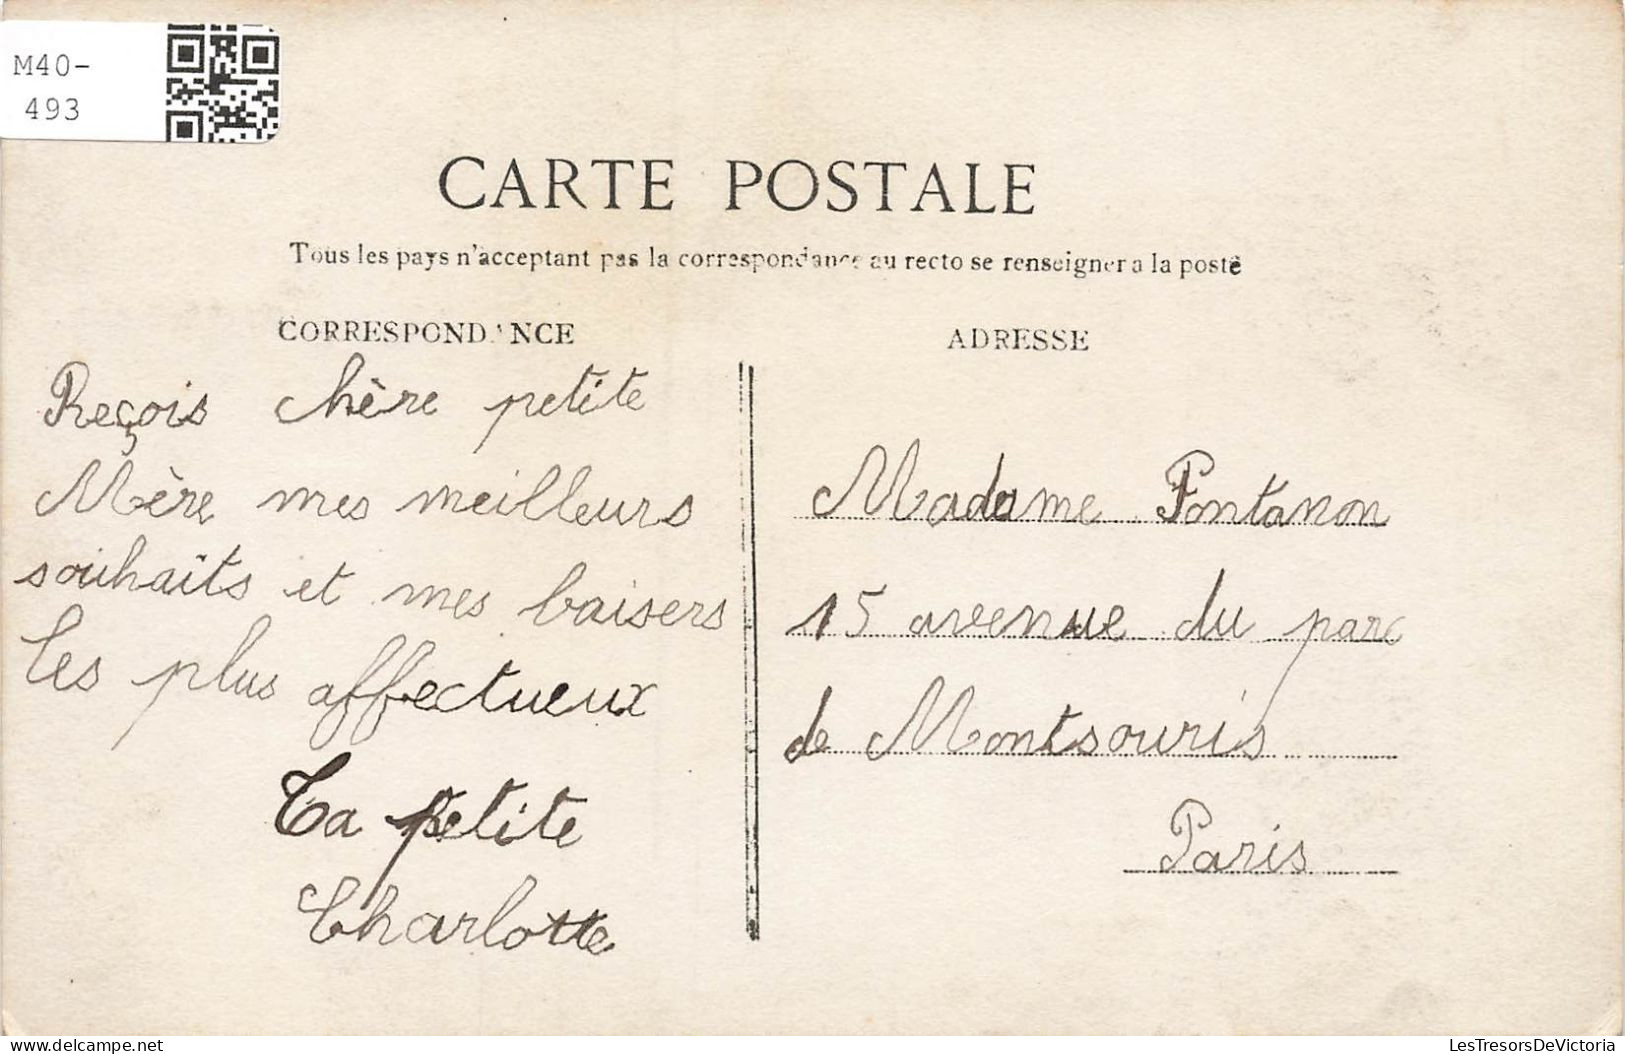 M40-
493
CARTE POSTALE
Tous les pays n'acceptant pas la correspondance au recto se renseigner a la poste
CORRESPONDANCE
ADRESSE
Reçois chère petite
Mère mes meilleurs
souhaits et mes baisers
les plus affectueux
Ta petite
Charlotte
Madame Fontanon
15 avenue du parc
de Montsouris
Paris
delcampe.net
LesTresorsDeVictoria